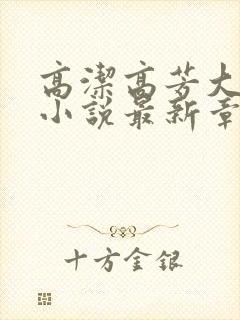 高潔高芳大
小說最新章
十方金銀